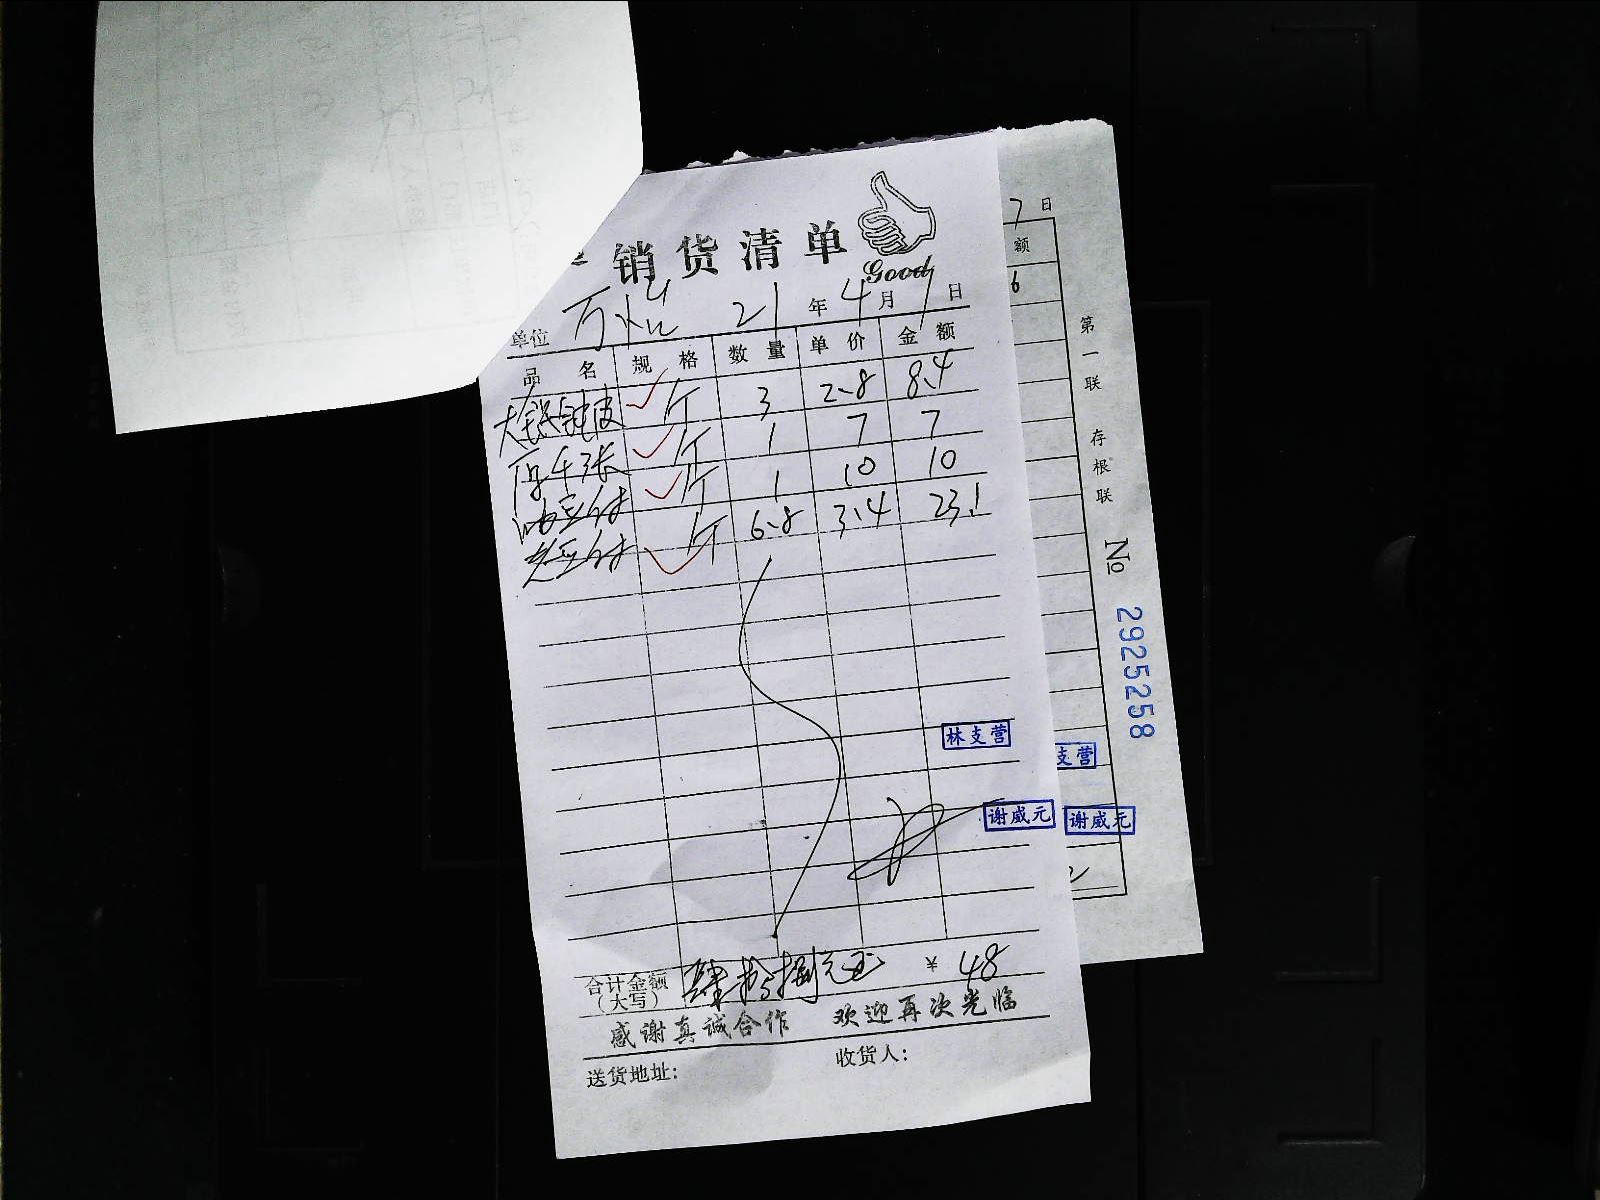 销货清单
Good
单位 21年4月1日
品名 规格 数量 单价 金额
斤 3 2.8 8.4
厚千张 斤 1 7 7
斤 1 10 10
老豆付 斤 6.8 3.4 23.1
林支营
谢威元
合计金额（大写） 肆拾捌元正 ¥ 48
感谢真诚合作 欢迎再次光临
送货地址： 收货人：
7日
额
6
支营
谢威元
第一联 存根联
№ 2925258